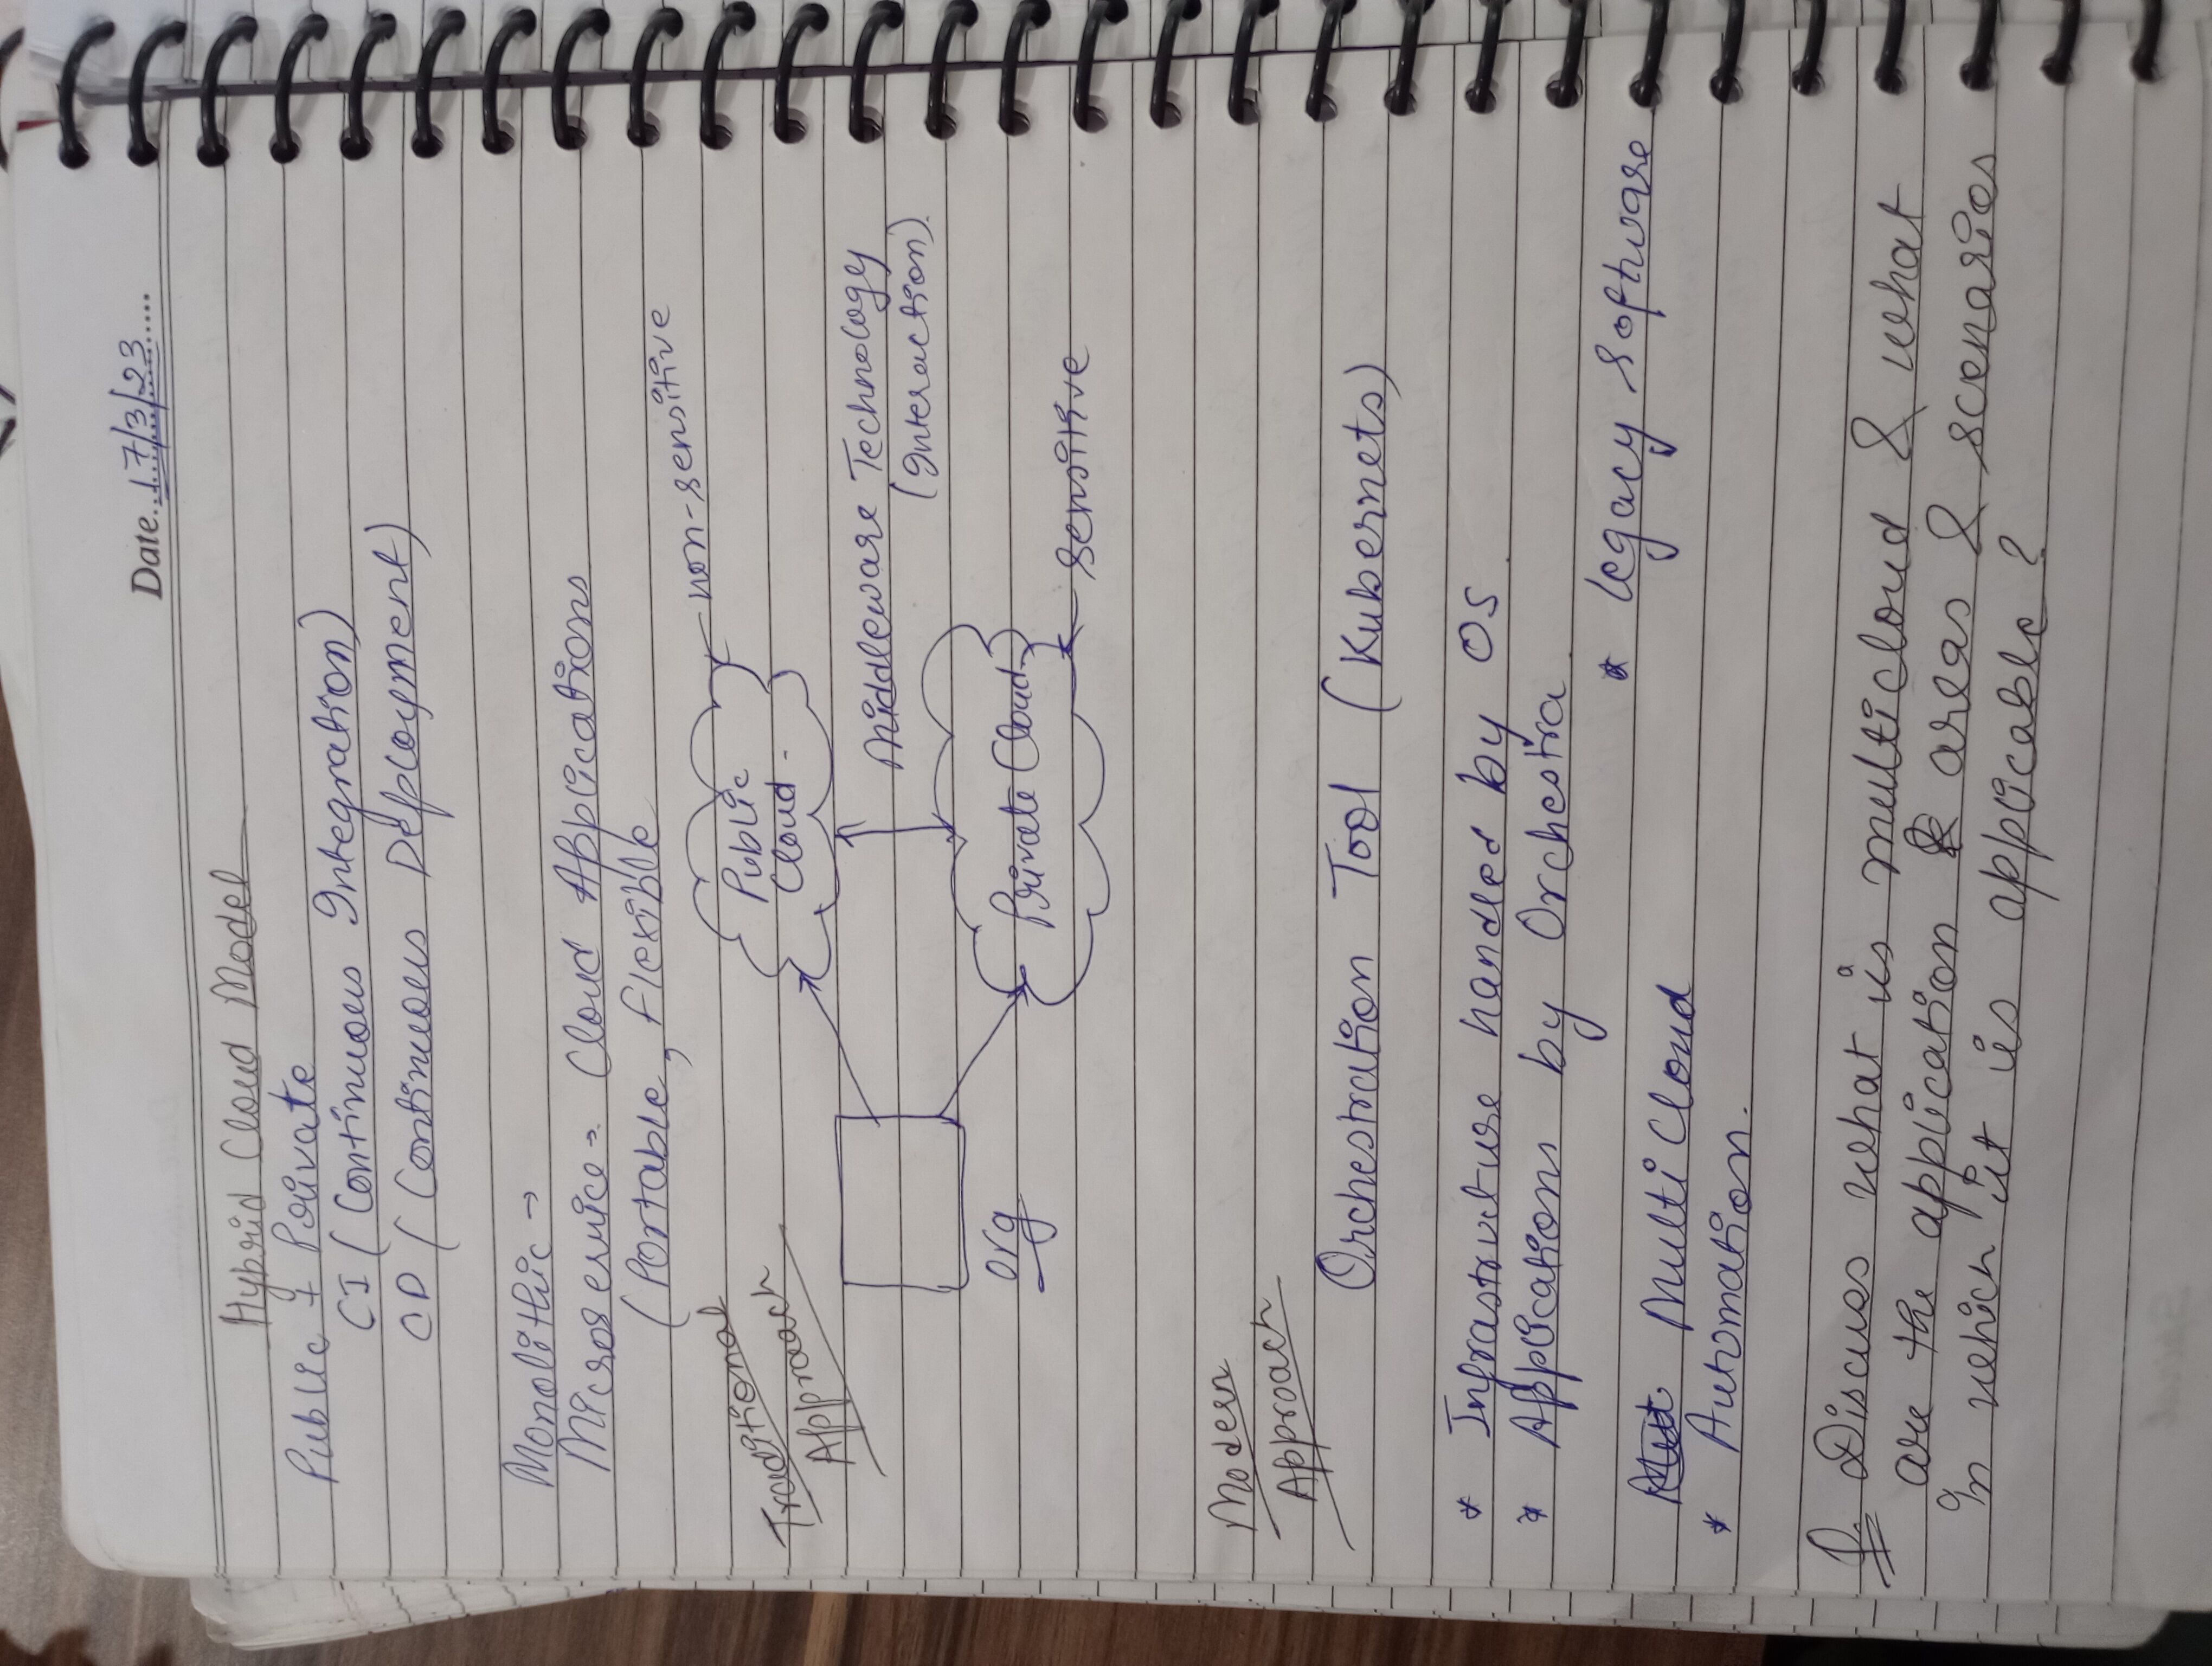 Date...17/3/23......
Hybrid Cloud Model
Public + Private
CI (Continuous Integration)
CD (Continuous Defployment)
Monolithic →
Microservice → Cloud Applications
(Portable, flexible
Traditional
Approach
Public
Cloud.
non-sensitive
Middleware Technology
(Interaction).
Private Cloud
sensitive
org
Modern
Approach
Orchestration Tool (Kubernets)
* Infrastructure handled by OS
* Applications by Orchestra
* legacy software
Multi Cloud
* Automation.
Q Discuss what is multicloud & what
are the application areas & scenarios
in which it is applicable?